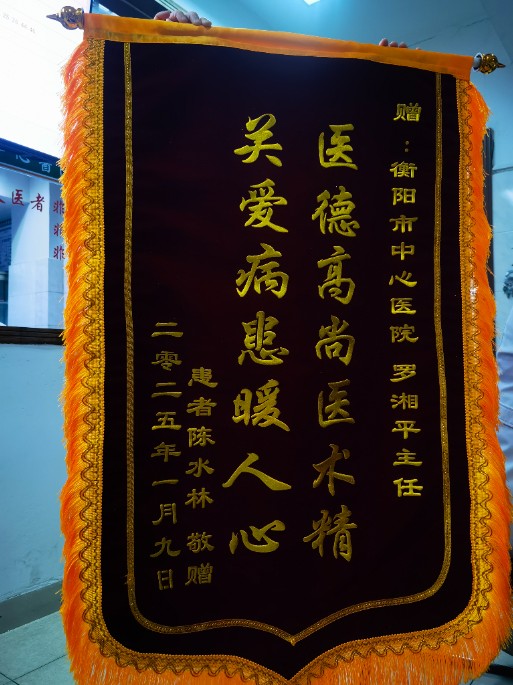 赠：衡阳市中心医院 罗湘平主任
医德高尚医术精
关爱病患暖人心
患者陈水林 敬赠
二零二五年一月九日
医者